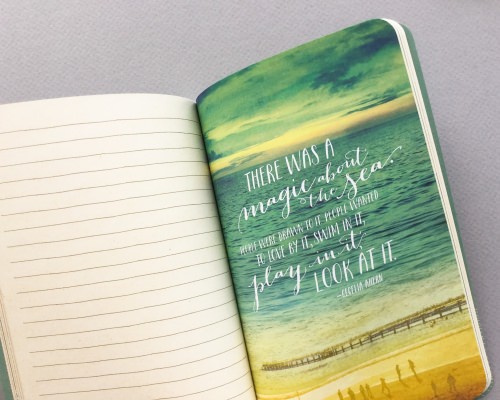 THERE WAS A
magic about
the sea.
PEOPLE WERE DRAWN TO IT. PEOPLE WANTED
TO LOVE BY IT, SWIM IN IT,
play in it,
LOOK AT IT.
—CECELIA AHERN